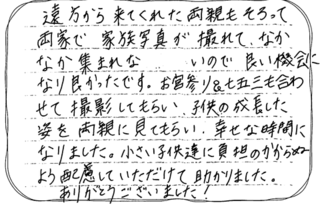 遠方から来てくれた両親もそろって
両家で家族写真が撮れて、なか
なか集まれな いので良い機会に
なり良かったです。お宮参り&七五三も合わ
せて撮影してもらい、子供の成長した
姿を両親に見てもらい、幸せな時間に
なりました。小さい子供達に負担のかからぬ
よう配慮していただけて助かりました。
ありがとうございました!